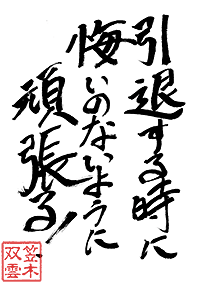 引退する時に
悔いのないように
頑張る!
笠木
双雲